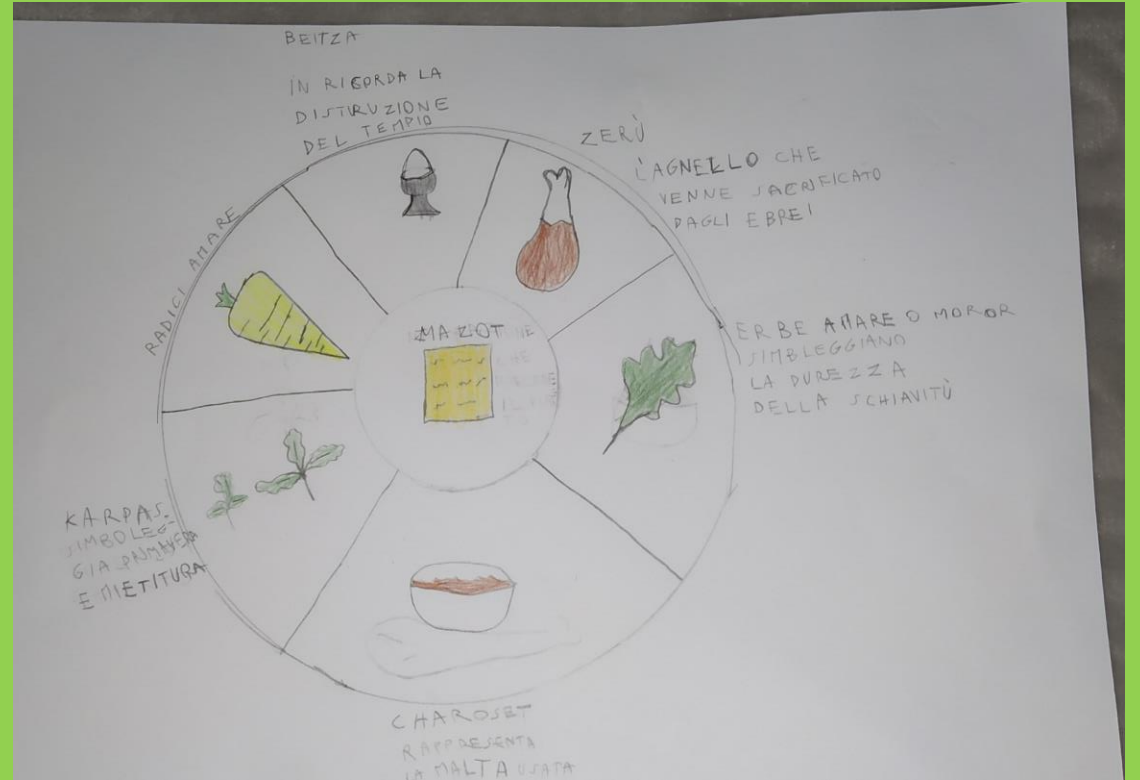 BEITZA
IN RICORDA LA
DISTRUZIONE
DEL TEMPIO
ZERÙ
L'AGNELLO CHE
VENNE SACRIFICATO
DAGLI EBREI
RADICI AMARE
MAZOT
ERBE AMARE O MOROR
SIMBLEGGIANO
LA DUREZZA
DELLA SCHIAVITÙ
KARPAS.
SIMBOLEG-
GIA PRIMAVERA
E MIETITURA
CHAROSET
RAPPRESENTA
LA MALTA USATA